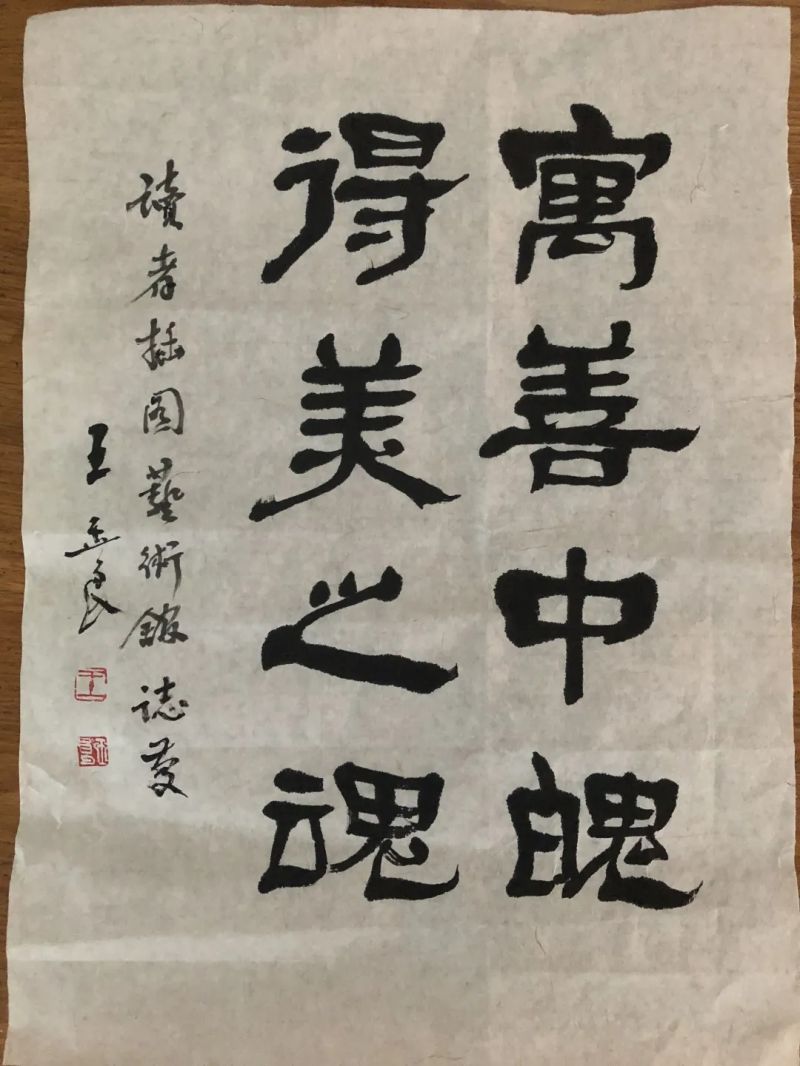 寓善中魄
得美之魂
讀者插圖藝術館誌慶
王孟良